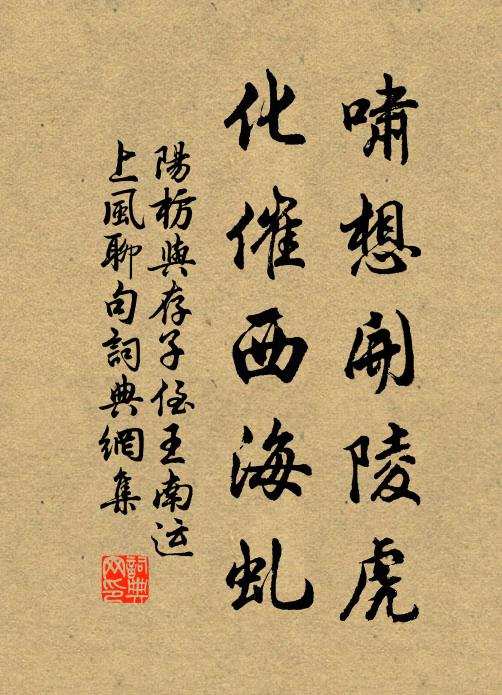 嘯想開陵虎
化催西海虬
陽枋與存子侄王南运
上風聊句詞典網集
詞典网印